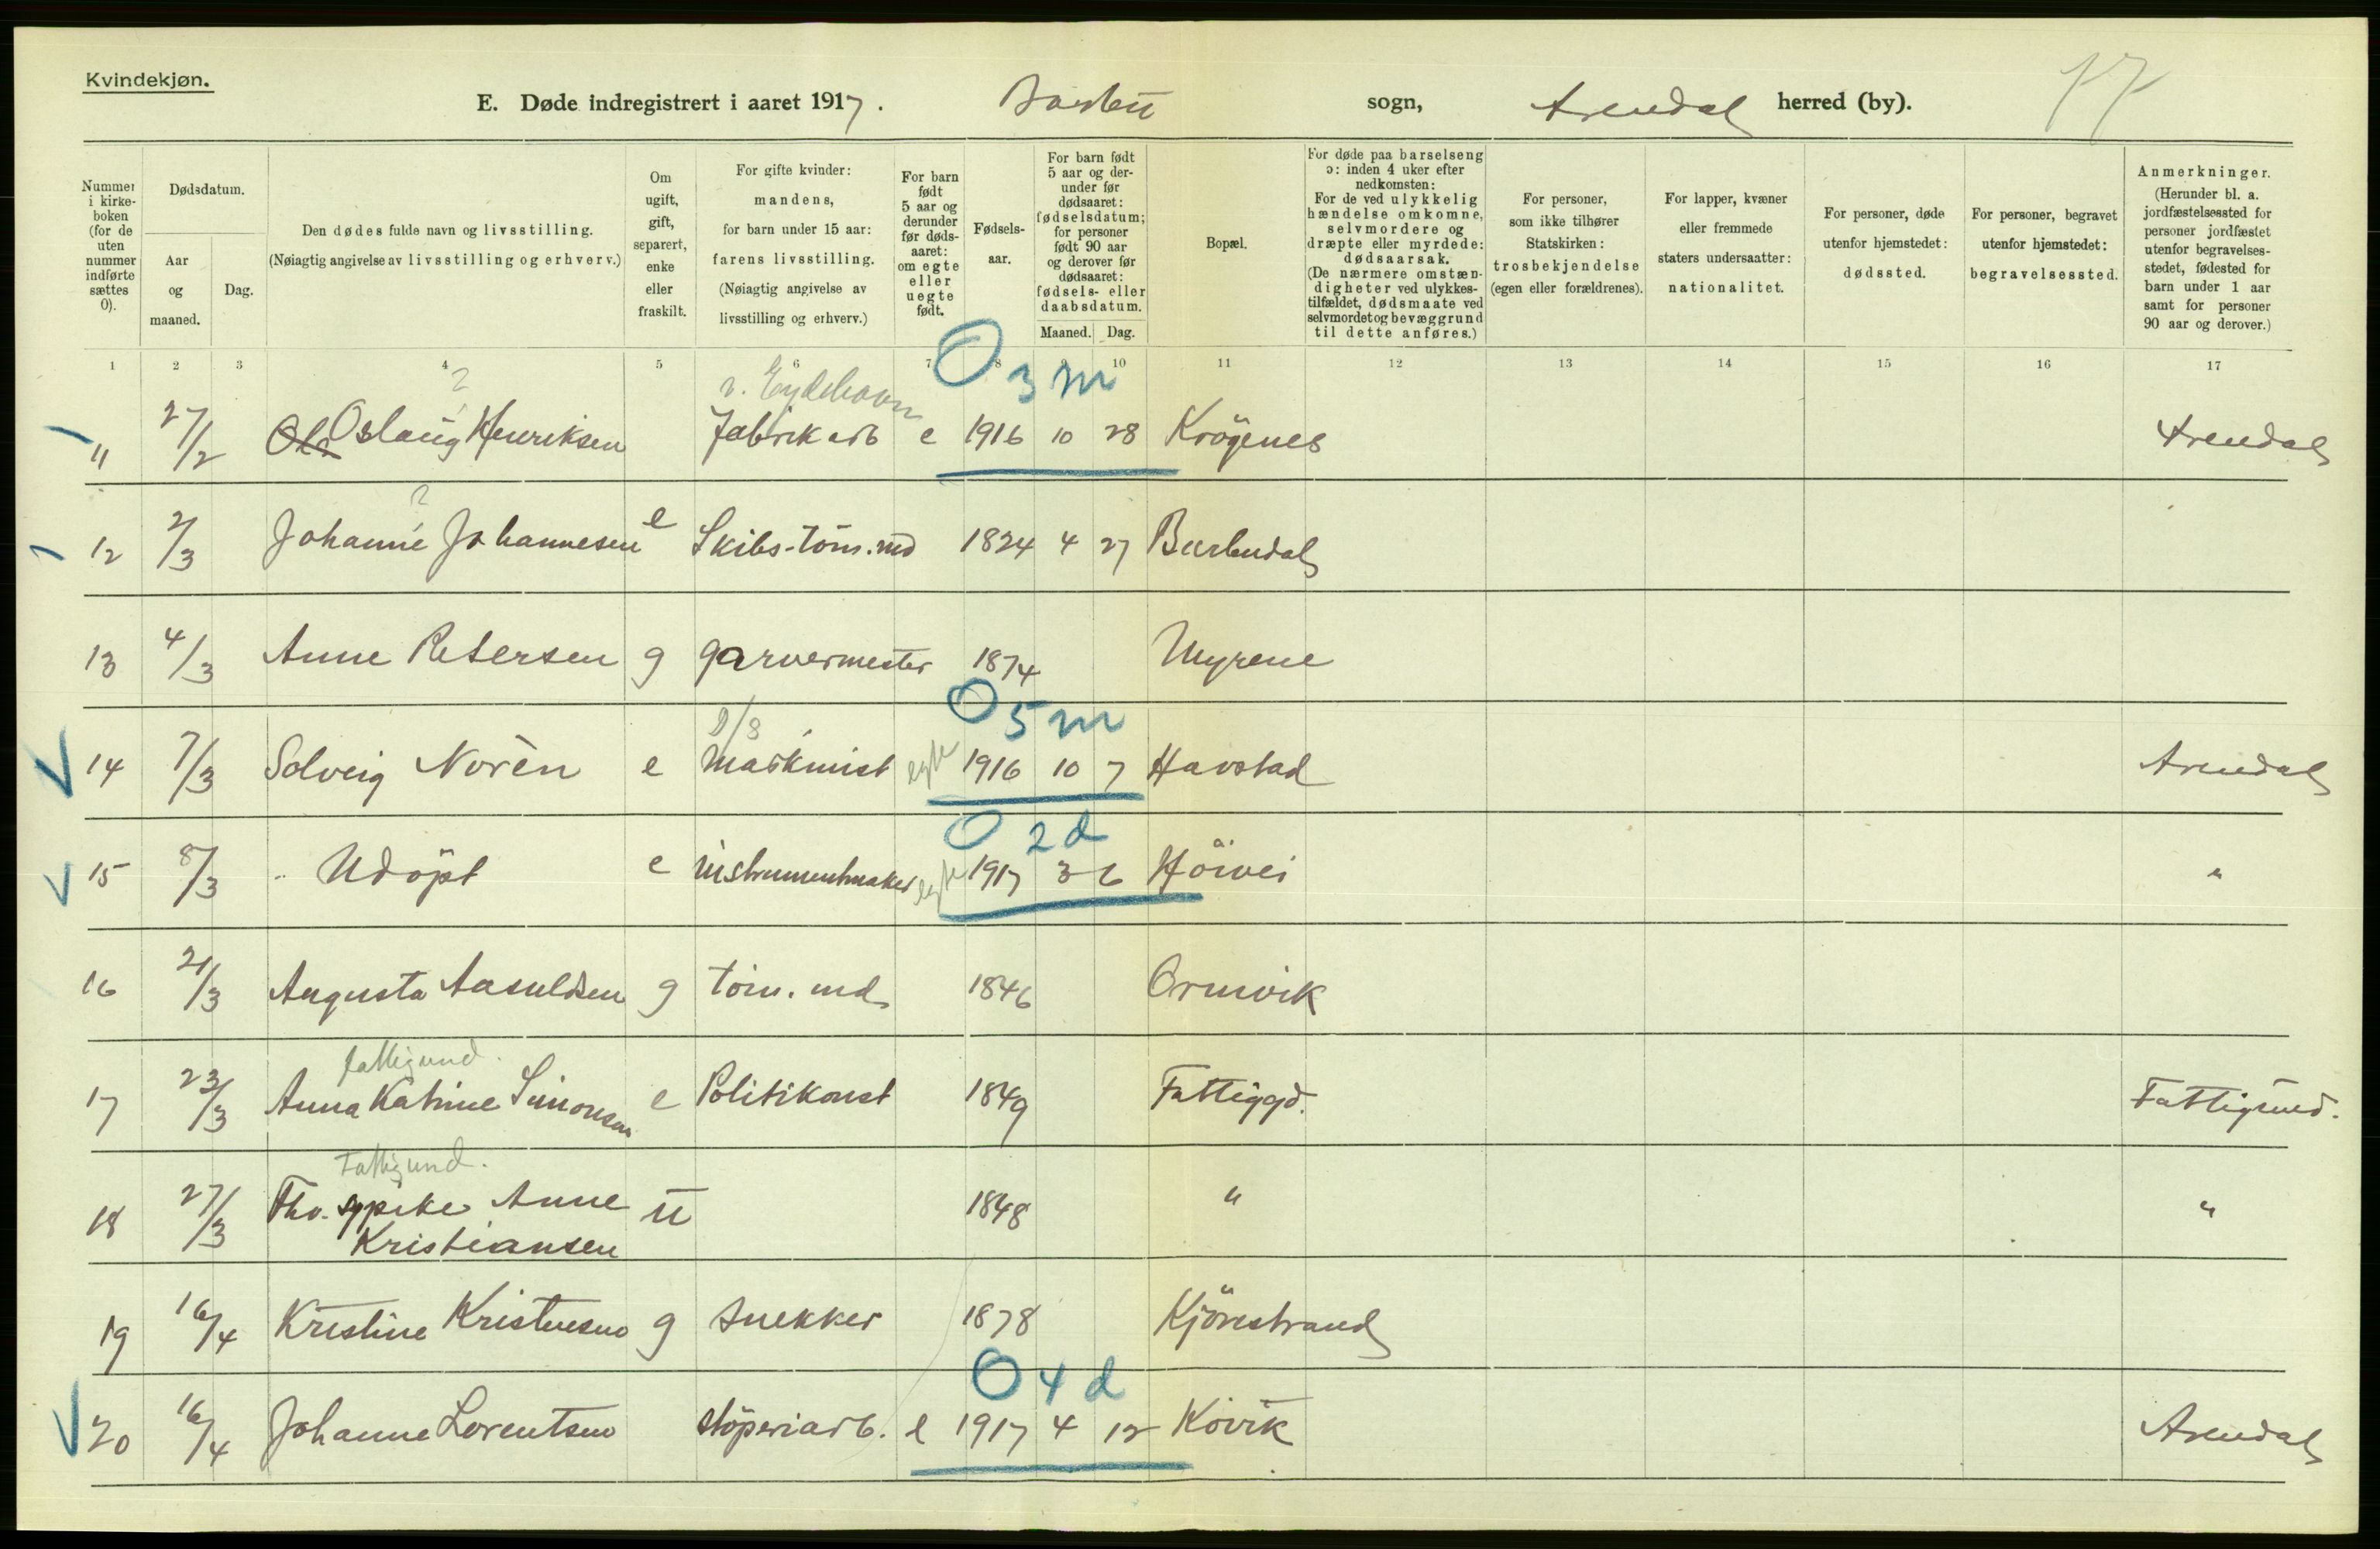 Kvindekjøn.
E. Døde indregistrert i aaret 1917. sogn, Arendal herred (by). 77
Nummer i kirkeboken (for de uten nummer indførte sættes 0).
Dødsdatum.
Aar og maaned.
Dag.
Den dødes fulde navn og livsstilling.
(Nøiagtig angivelse av livsstilling og erhverv.)
Om ugift, gift, separert, enke eller fraskilt.
For gifte kvinder: mandens, for barn under 15 aar: farens livsstilling. (Nøiagtig angivelse av livsstilling og erhverv.)
For barn født 5 aar og derunder før dødsaaret: om egte eller uegte født.
Fødselsaar.
For barn født 5 aar og derunder før dødsaaret: fødselsdatum; for personer født 90 aar og derover før dødsaaret: fødsels- eller daabsdatum.
Maaned. Dag.
Bopæl.
For døde paa barselseng ɔ: inden 4 uker efter nedkomsten: For de ved ulykkelig hændelse omkomne, selvmordere og dræpte eller myrdede: dødsaarsak. (De nærmere omstændigheter ved ulykkestilfældet, dødsmaate ved selvmordet og bevæggrund til dette anføres.)
For personer, som ikke tilhører Statskirken: trosbekjendelse (egen eller forældrenes).
For lapper, kvæner eller fremmede staters undersaatter: nationalitet.
For personer, døde utenfor hjemstedet: dødssted.
For personer, begravet utenfor hjemstedet: begravelsessted.
Anmerkninger. (Herunder bl. a. jordfæstelsessted for personer jordfæstet utenfor begravelsesstedet, fødested for barn under 1 aar samt for personer 90 aar og derover.)
1 2 3 4 5 6 7 8 9 10 11 12 13 14 15 16 17
? v. Eydehavn O 3 m
11 27/2 Oslaug Henriksen Fabrikarb e 1916 10 28 Krøgenes Arendal
?
12 2/3 Johanne Johannesen e Skibs-töm.md 1824 4 27 Barbudal
13 4/3 Anne Petersen g garvermester 1874 Myrene
D/S O 5 m
14 7/3 Solveig Norèn e Maskinist egte 1916 10 7 Havstad Arendal
O 2 d
15 8/3 Udöpt e instrumentmaker egte 1917 3 6 Höivei "
16 21/3 Augusta Aasuldsen g töm. md 1846 Ormvik
Fattigund.
17 23/3 Anna Katrine Simonsen e Politikonst 1849 Fattiggd. Fattigund.
Fattigund.
18 27/3 Fhv. sypike Anne u 1848 " "
Kristiansen
19 16/4 Kristine Kristensen g Snekker 1878 Kjörrestrand
O 4 d
20 16/4 Johanne Lorentsen stöperiarb. e 1917 4 12 Kövik Arendal